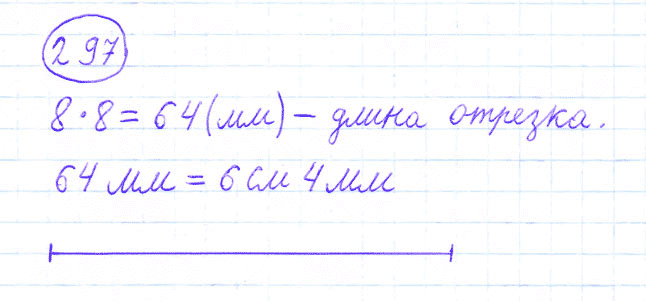 297
8·8=64(мм) – длина отрезка.
64 мм = 6 см 4 мм